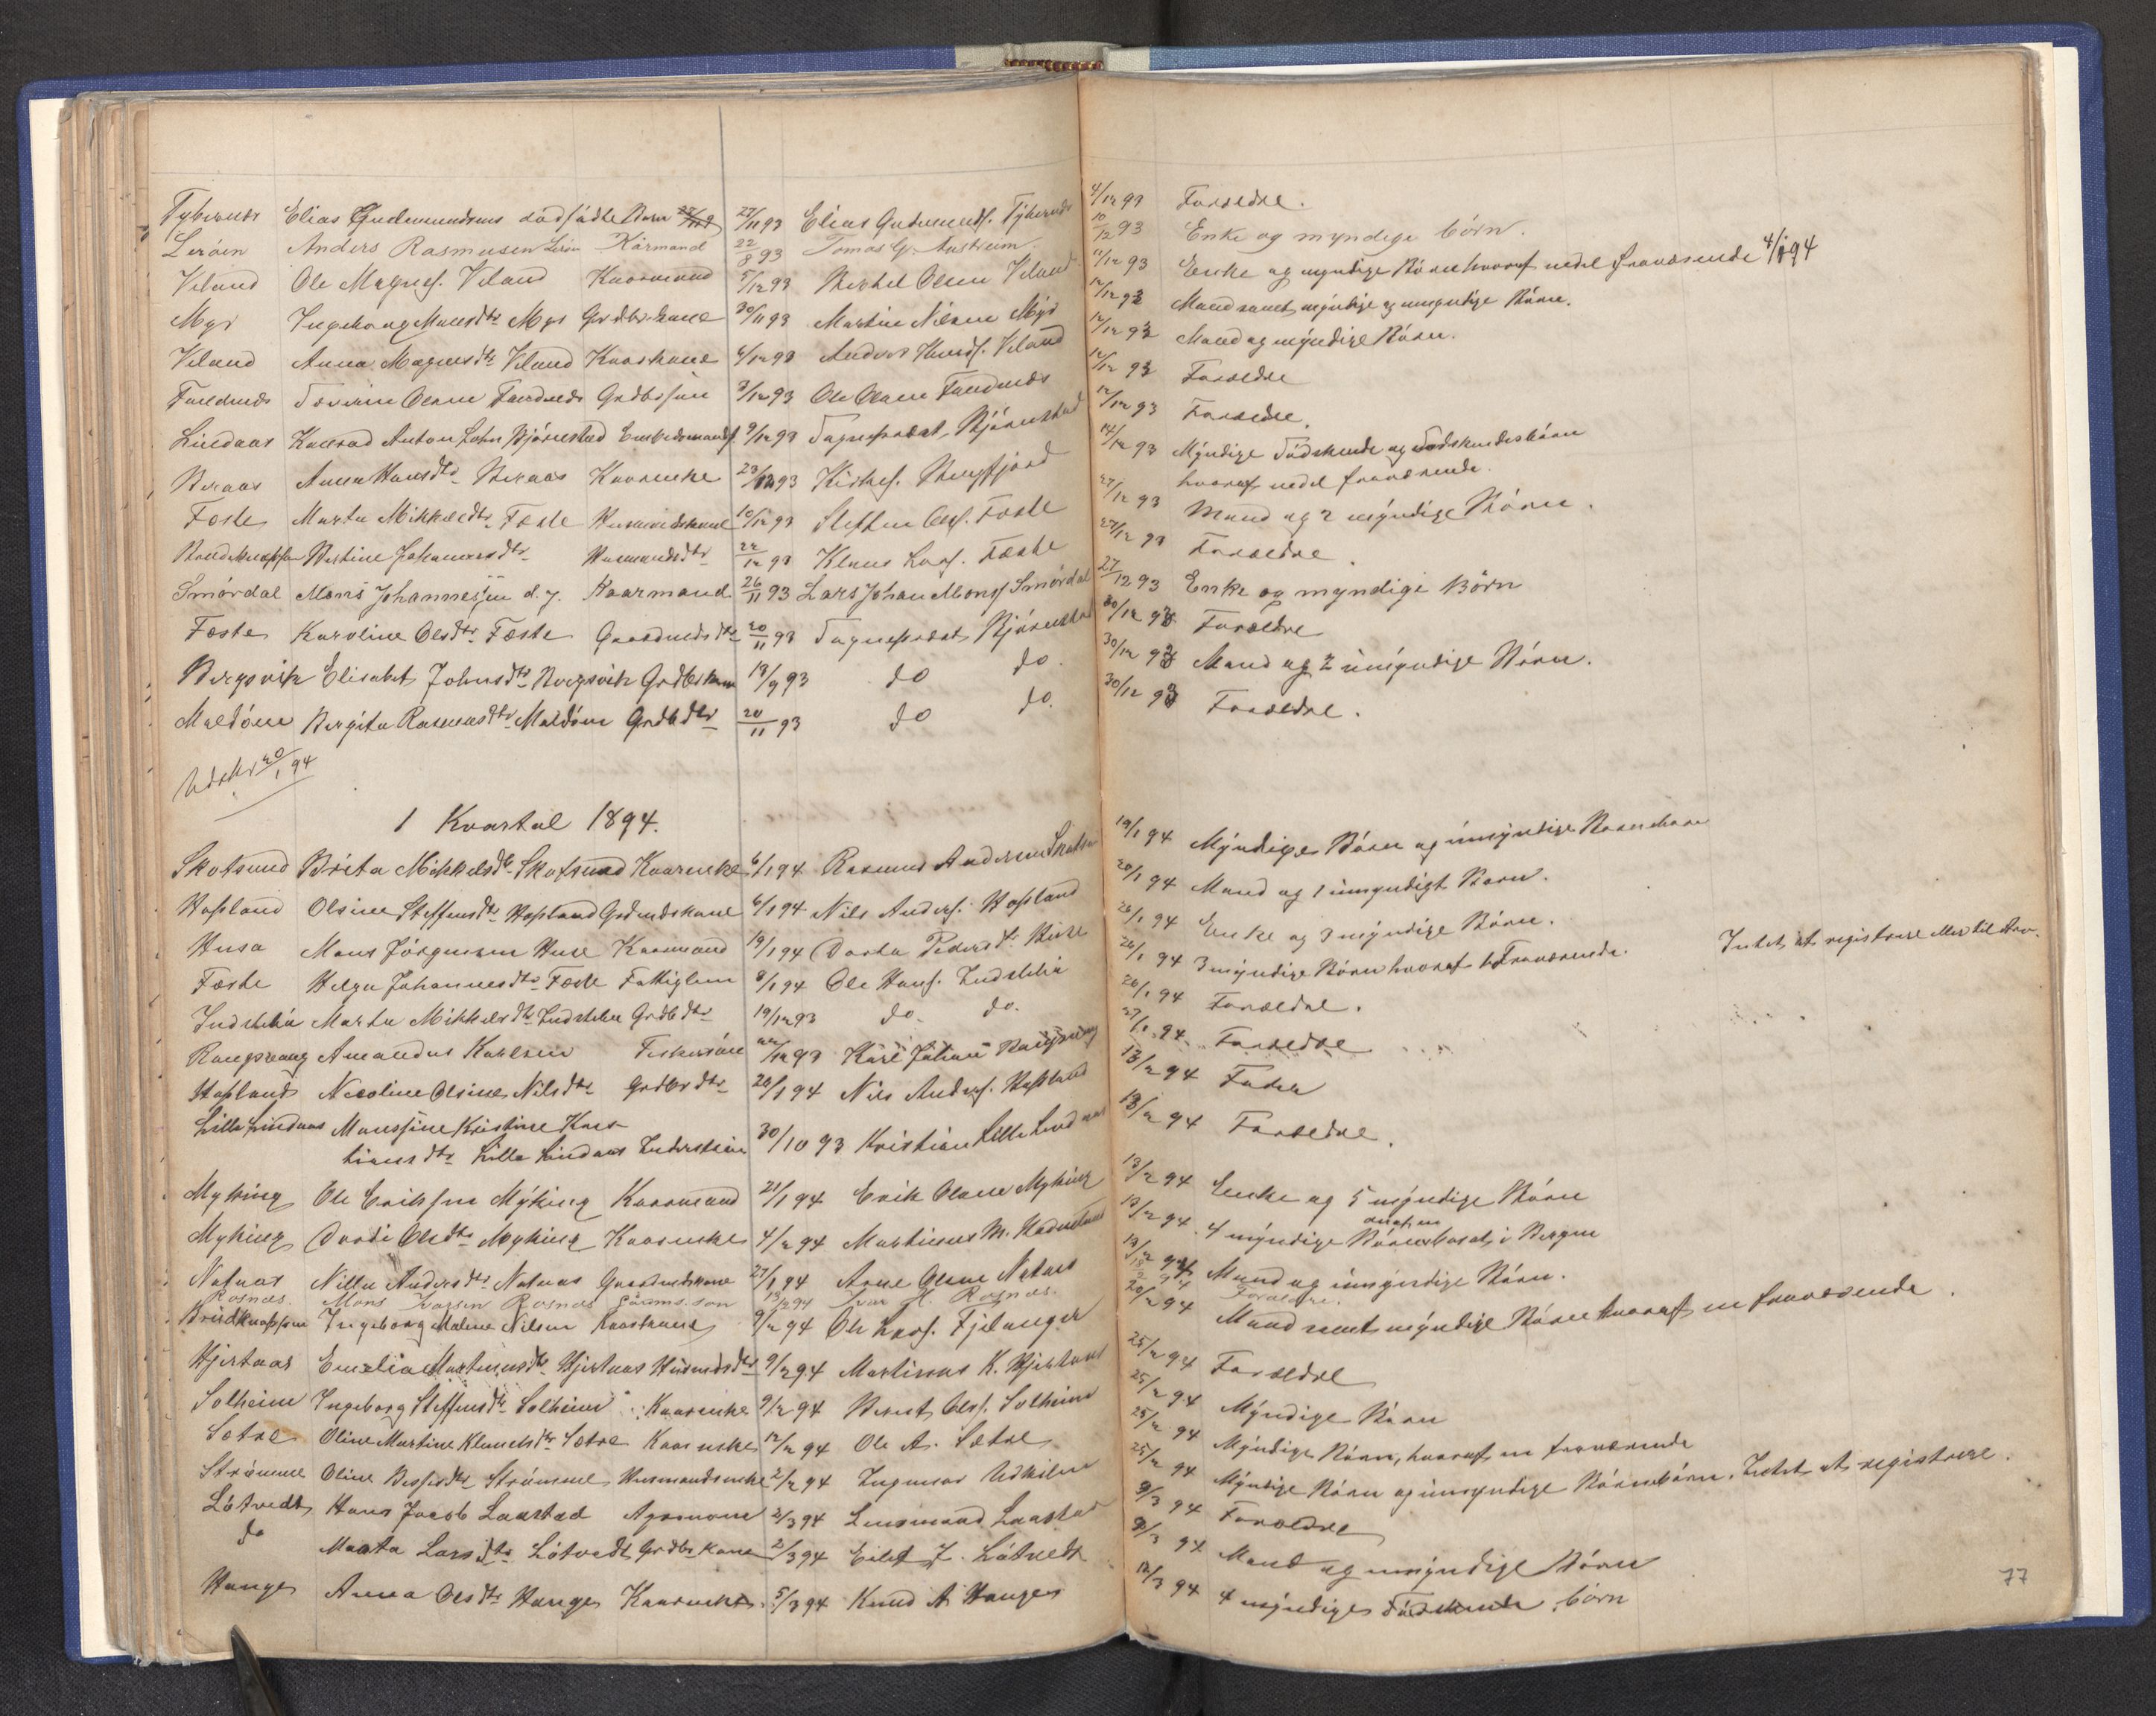 Elias Gudmundsens dødfødte Barn 27/11 93 Elias Gudmunds. 4/12 93 Forældre.
Lerøen Anders Rasmussen Lerøn Kårmand 22/8 93 Tomas G. Austreim 10/12 93 Enke og myndige börn.
Veland Ole Magnes. Veland Kaarmand 5/12 93 Berthel Olsen Veland 11/12 93 Enke og myndige Börn hvoraf nedel fraværende 4/1 94
Myr Ingeborg Monsdtr Myr Grdbr kone 30/11 93 Martin Nilsen Myr 12/12 93 Mand samt myndige og umyndige Börn.
Veland Anna Magnesdtr Veland Kaarkone 6/12 93 Anders Knuds. Veland 12/12 93 Mand og myndige Börn.
Severin Olsen Grdbr sön 3/12 93 Ole Olsen 12/12 93 Forældre
Lindaas Konrad Anton John Björnestad Embedsmands. 9/12 93 Sogneprest Björnestad 12/12 93 Forældre.
Anna Hansdtr Kaarenke 23/12 93 Kirkes. Bergfjord 14/12 93 Myndige Södskende og Södskendesbörn
hvoraf nedel fraværende.
Foste Marta Mikkelsdtr Foste Husmandskone 10/12 93 Steffen Ols. Foste 27/12 93 Mand og 2 myndige Börn.
Bertine Johannesdtr Husmandsdtr 22/12 93 Klaus Lars. Foste 27/12 93 Forældre.
Smördal Mons Johannessen d.y. Kaarmand 26/11 93 Lars Johan Mons. Smördal 27/12 93 Enke og myndige Börn
Foste Karoline Olsdtr Foste Gaardmds dtr 20/11 93 Sogneprest Björnestad 30/12 93 Forældre
Bergsvik Elisabet Johnsdtr Bergsvik Grdbrkone 19/9 93 do do. 30/12 93 Mand og 2 umyndige Börn.
Mældöen Bergita Rasmusdtr Mældöen Grdb dtr 20/11 93 do do. 30/12 93 Forældre.
Udskr 20/1 94
1 Kvartal 1894.
Skotsund Brita Mikkelsdtr Skotsund Kaarenke 6/1 94 Rasmus Andersen 19/1 94 Myndige Börn og umyndige Barnebarn
Hopland Olsine Steffensdtr Hopland Grdmdskone 6/1 94 Nils Anders. Hopland 20/1 94 Mand og 1 umyndigt Barn.
Husa Mons Jörgensen Huse Kaarmand 19/1 94 Dorta Pedersdtr Huse 26/1 94 Enke og 3 myndige Börn.
Foste Helga Johannesdtr Foste Fattiglem 8/1 94 Ole Hans. Indstelia 26/1 94 3 myndige Börn hvoraf 1 Fraværende. Intet at registrere eller til Arv.
Indstelia Marta Mikkelsdtr Indstelia Grdb dtr 19/12 93 do. do. 26/1 94 Forældre.
Amandus Karlsen Fiskersön 22/12 93 Karl Johan 27/1 94 Forældre
Hopland Nicoline Olsine Nilsdtr Grdbr dtr 26/1 94 Nils Anders. Hopland 13/2 94 Fader
Lille Lindaas Monsine Kristine Kris-
tiansdtr Lille Lindaas Inderstsön 30/10 93 Kristian Lille Lindaas 13/2 94 Forældre.
Myking Ole Eriksen Myking Kaarmand 21/1 94 Erik Olsen Myking 13/2 94 Enke og 5 myndige Börn
Myking Dordi Olsdtr Myking Kaarenke 4/2 94 Martinus M. 13/2 94 4 myndige Börn bosat i Bergen
Nataas Nilla Andersdtr Natnas Gaardmdskone 27/1 94 Arne Olsen Natnaas 13/2 94 Mand og umyndige Börn.
Rosnæs. Mons Ivarsen Rosnæs Gårms. son 13/2 94 Ivar H. Rosnæs. 18/2 94 Foraldre.
Brudknappen Ingeborg Malene Nilsen Kaarkone 9/2 94 Ole Lars. Fjelanger 20/2 94 Mand samt myndige Börn hvoraf en fraværende.
Hjertaas Emelia Martinusdtr Hjertaas Husmdsdtr 9/2 94 Martinus K. Hjertaas 25/2 94 Forældre
Solheim Ingeborg Steffensdtr Solheim Kaarenke 9/2 94 Bernt Ols. Solheim 25/2 94 Myndige Börn
Sætre Oline Martine Klausdtr Sætre Kaarenke 12/2 94 Ole A. Sætre 25/2 94 Myndige Börn, hvoraf en fraværende
Strömme Oline Strömme Husmandsenke 2/2 94 Ingemar Udkilen 25/2 94 Myndige Börn og umyndige Börnebörn. Intet at registrere.
Lötvedt Hans Jacob Laastad Agronom 2/3 94 Lensmand Laastad 9/3 94 Forældre
do Marta Larsdtr Lötvedt Grdbr kone 2/3 94 Eilef J. Lötvedt 9/3 94 Mand og umyndige Börn
Hauge Anna Olsdtr Hauge Kaarenke. 5/3 94 Knud A Hauge 12/3 94 4 myndige Södskende börn
77